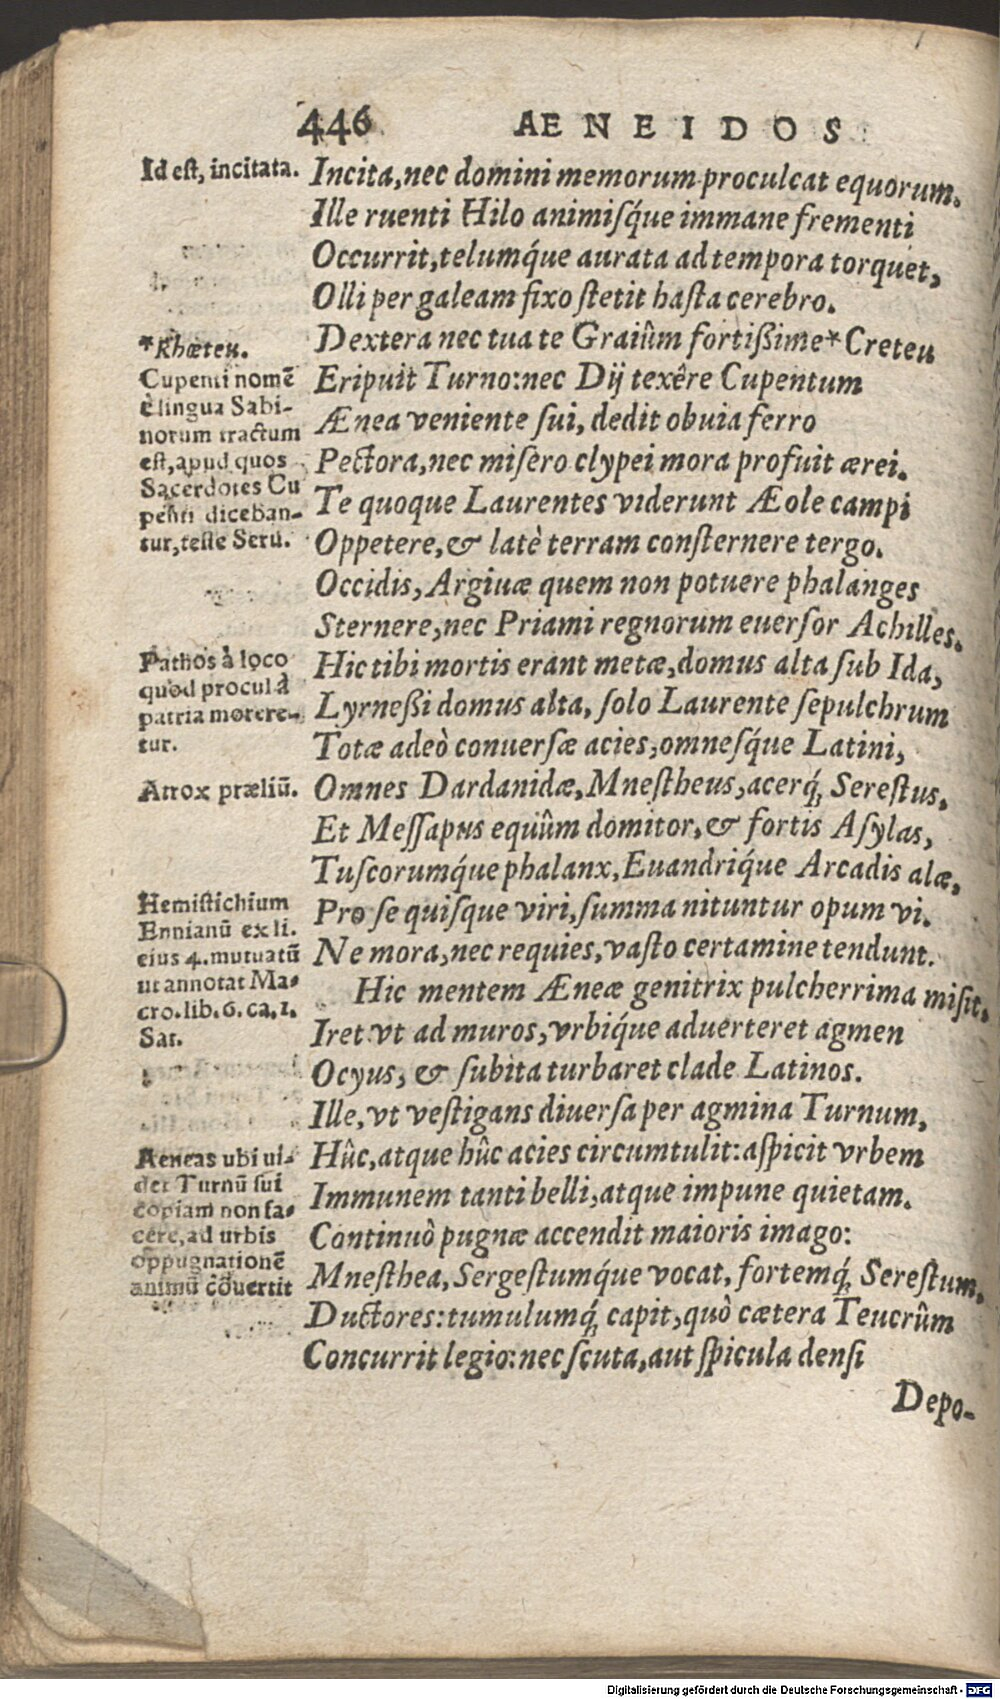 446 AENEIDOS
Id est, incitata.
Incita, nec domini memorum proculcat equorum.
Ille ruenti Hilo animisq́ue immane frementi
Occurrit, telumq́ue aurata ad tempora torquet,
Olli per galeam fixo stetit hasta cerebro.
Dextera nec tua te Graiûm fortißime * Creteu
Eripuit Turno: nec Dij texêre Cupentum
Ænea veniente sui, dedit obuia ferro
Pectora, nec misero clypei mora profuit ærei.
Te quoque Laurentes viderunt Æole campi
Oppetere, & latè terram consternere tergo.
Occidis, Argiuæ quem non potuere phalanges
Sternere, nec Priami regnorum euersor Achilles.
Hic tibi mortis erant metæ, domus alta sub Ida,
Lyrneßi domus alta, solo Laurente sepulchrum
Totæ adeò conuersæ acies, omnesq́ue Latini,
Omnes Dardanidæ, Mnestheus, acerq́; Serestus,
Et Messapus equûm domitor, & fortis Asylas,
Tuscorumq́ue phalanx, Euandriq́ue Arcadis alæ,
Pro se quisque viri, summa nituntur opum vi.
Ne mora, nec requies, vasto certamine tendunt.
Hic mentem Æneæ genitrix pulcherrima misit.
Iret vt ad muros, vrbiq́ue aduerteret agmen
Ocyus, & subita turbaret clade Latinos.
Ille, vt vestigans diuersa per agmina Turnum,
Hûc, atque hûc acies circumtulit: aspicit vrbem
Immunem tanti belli, atque impune quietam.
Continuò pugnæ accendit maioris imago:
Mnesthea, Sergestumq́ue vocat, fortemq́; Serestum,
Ductores: tumulumq́; capit, quò cætera Teucrûm
Concurrit legio: nec scuta, aut spicula densi
Depo-
*Rhœteu.
Cupenti nomē
è lingua Sabi-
norum tractum
est, apud quos
Sacerdotes Cu
penti diceban-
tur, teste Seru.
Pathos à loco
quod procul à
patria morere-
tur.
Atrox præliū.
Hemistichium
Ennianū ex li.
eius 4. mutuatū
ut annotat Ma-
cro. lib. 6. ca. 1.
Sat.
Aeneas ubi ui-
det Turnū sui
copiam non fa-
cere, ad urbis
oppugnationē
animū cōuertit
Digitalisierung gefördert durch die Deutsche Forschungsgemeinschaft - DFG